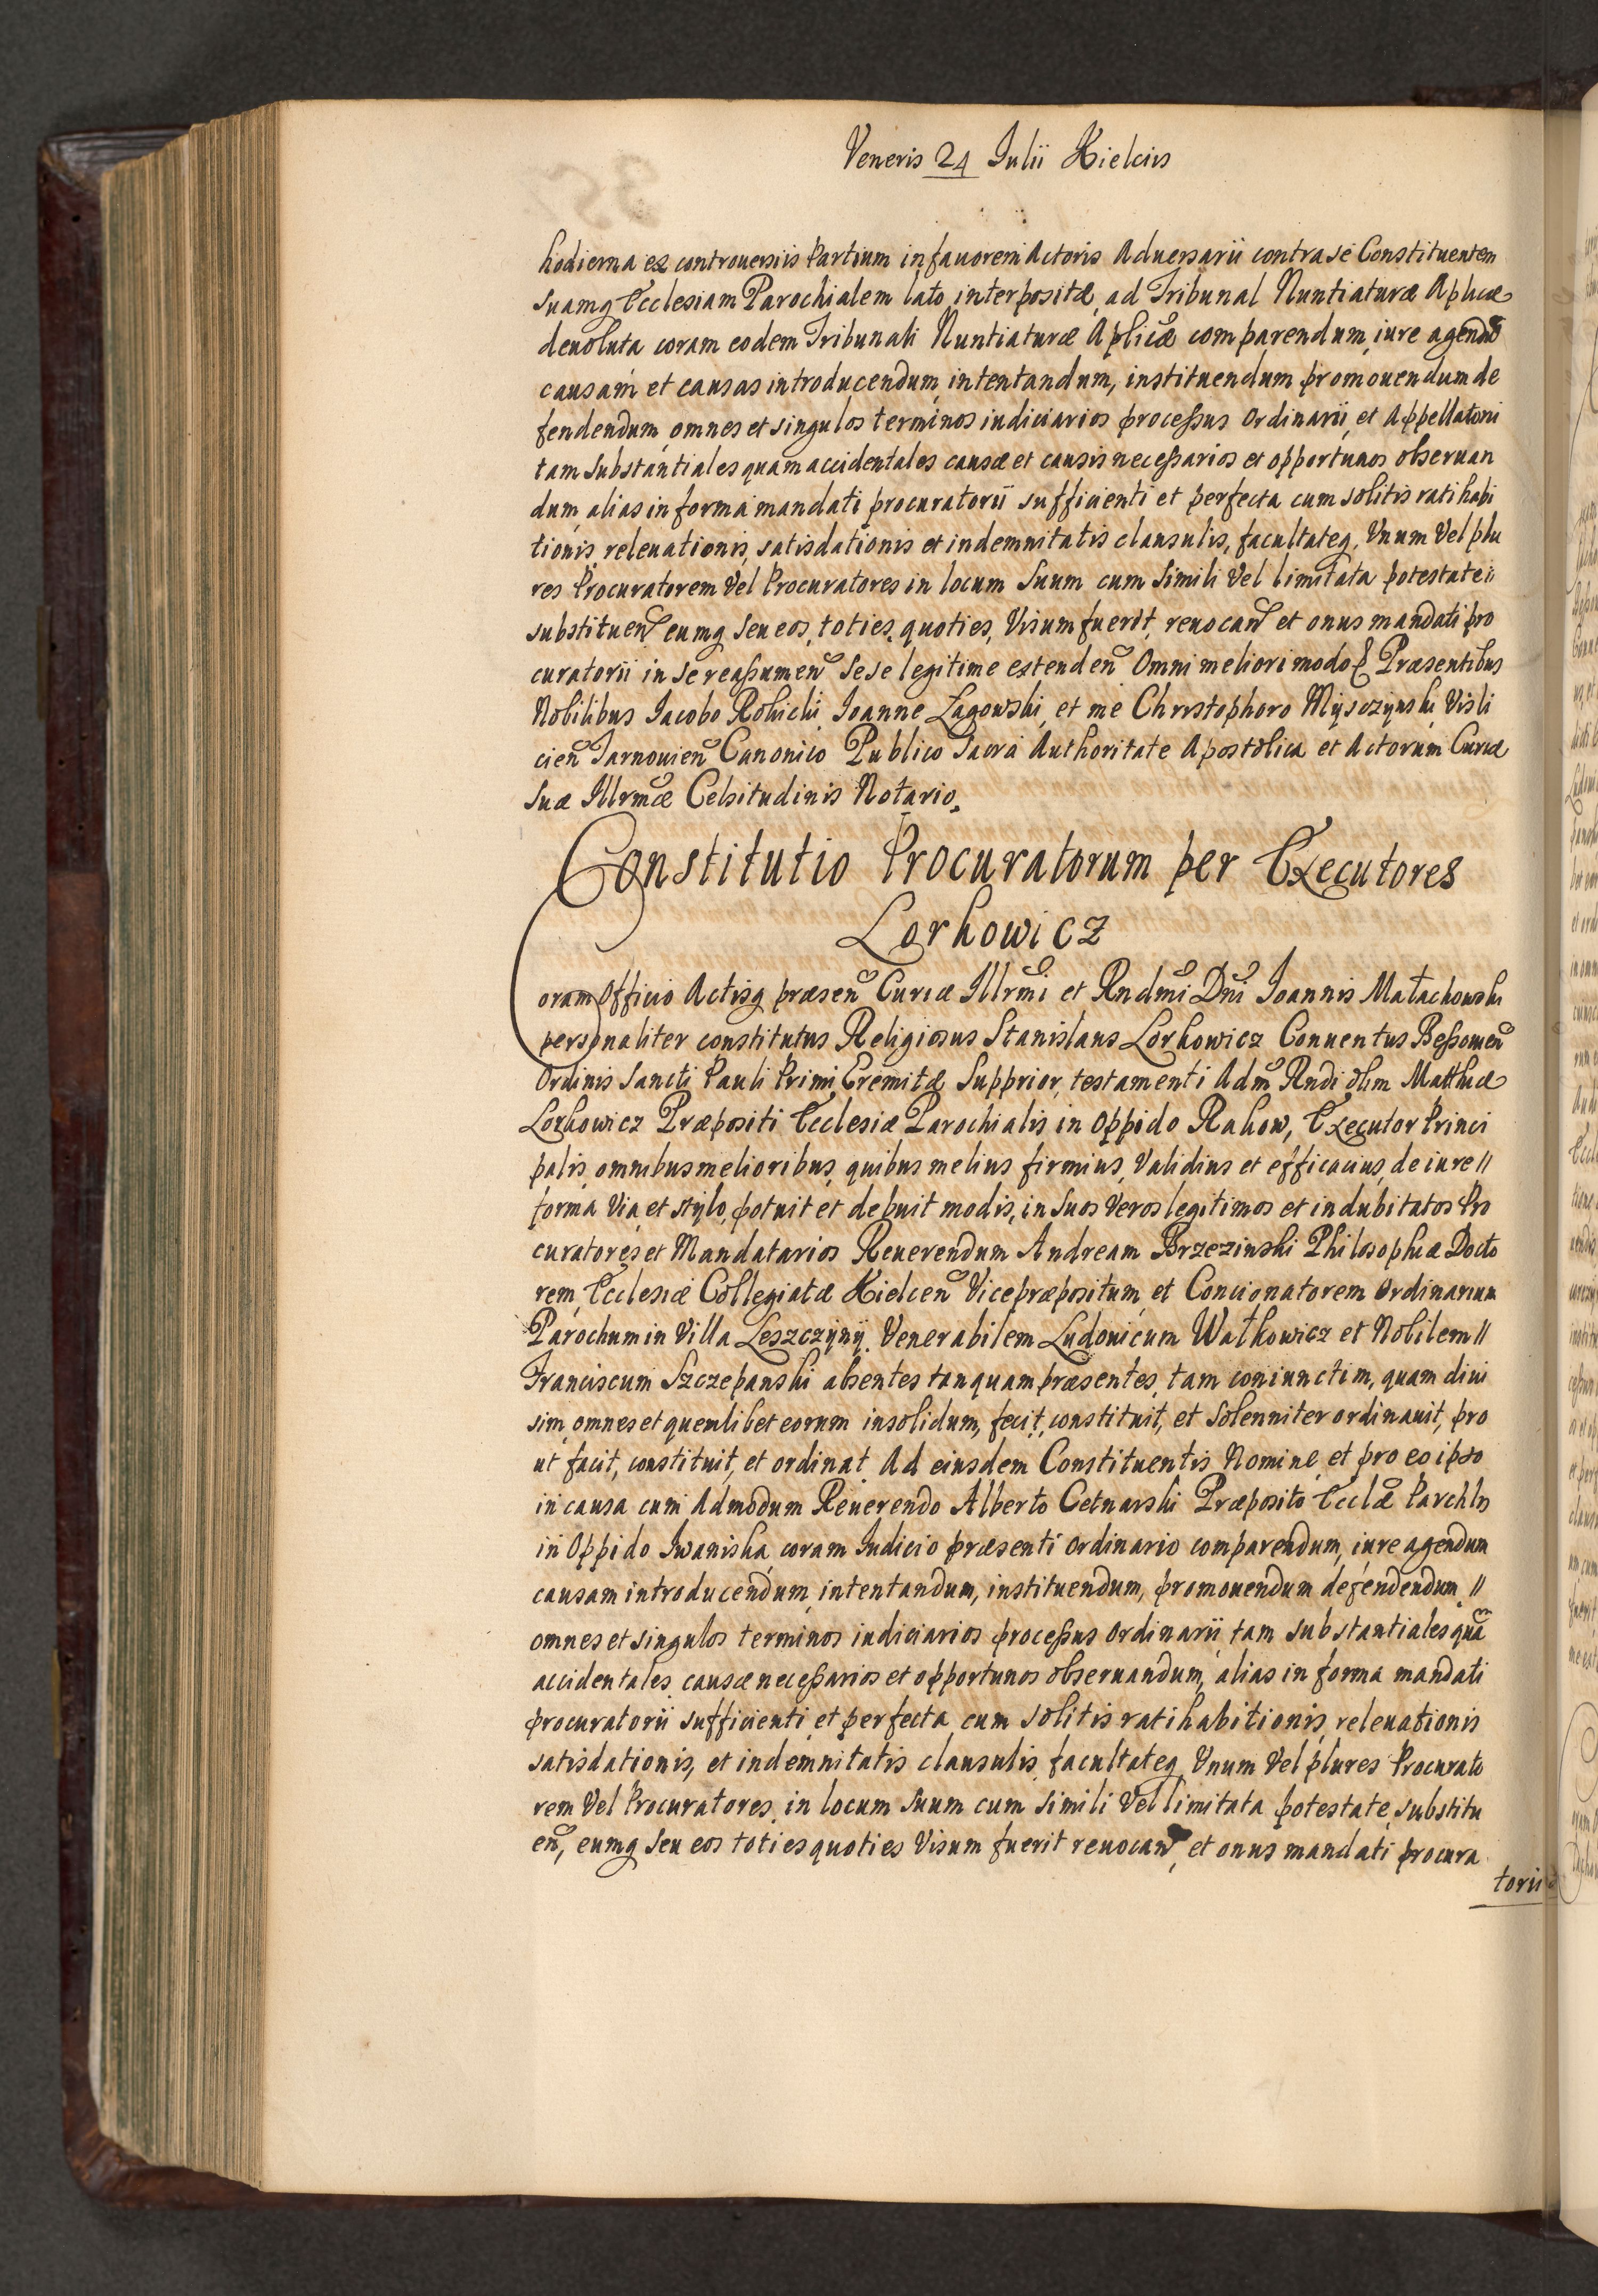 Veneris 24 Julii Kielciis
hodierna ex controuersiis Partium in fauorem Actoris Aduersarii contra se Constituentem
suamq Ecclesiam Parochialem lato interpositæ, ad Tribunal Nuntiaturæ Aplicæ
deuoluta coram eodem Tribunali Nuntiaturæ Aplicæ comparendum, iure agendũ
causam et causas introducendum, intentandum, instituendum promouendum de
fendendum, omnes et singulos terminos iudiciarios processus Ordinarii, et Appellatorii
tam substantiales quam accidentales causæ et causis necessarios et opportunos obseruan
dum, alias in forma mandati procuratorii sufficienti et perfecta cum solitis ratihabi
tionis, releuationis, satisdationis et indemnitatis clausulis, facultateq. Vnum Vel plu
res Procuratorem Vel Procuratores in locum Suum cum Simili Vel limitata potestate
substituen̄ eumq Seu eos, toties, quoties, Visum fuerit, reuocan̄ et onus mandati pro
curatorii in se reassumen̄ sese legitime extenden̄ Omni meliori modo Præsentibus
Nobilibus Iacobo Rokicki Ioanne Łagowski, et me Christophoro Mysczynski Visli
cien̄ Tarnouien̄ Canonico Publico Sacra Authoritate Apostolica et Actorum Curiæ
Suæ Illrmæ Celsitudinis Notario.
Constitutio Procuratorum per Executores
Lorkowicz
Coram Officio Actisq præsen̄ Curiæ Illrmi et Rndmi Dni Ioannis Małachowski
personaliter constitutus Religiosus Stanislaus Lorkowicz Conuentus Bessouien̄
Ordinis Sancti Pauli Primi Eremitæ Supprior, testamenti Adm Rndi olim Matthiæ
Lorkowicz Præpositi Ecclesiæ Parochialis in Oppido Rakow, Executor Princi
palis, omnibus melioribus, quibus melius firmius, Validius et efficacius, de iure //
forma Via et stylo, potuit et debuit modis, in Suos Veros legitimos et indubitatos Pro
curatores et Mandatarios Reuerendum Andream Brzezinski Philosophiæ Docto
rem, Ecclesiæ Collegiatæ Kielcen̄ Vicepræpositum, et Concionatorem Ordinarium
Parochum in Villa Leszczyny. Venerabilem Ludouicum Wałkowicz et Nobilem //
Franciscum Szczepanski absentes tanquam præsentes, tam coniunctim, quam diui
sim, omnes et quemlibet eorum insolidum, fecit, constituit, et Solenniter ordinauit, pro
ut facit, constituit, et ordinat. Ad eiusdem Constituentis Nomine, et pro eo ipso
in causa cum Admodum Reuerendo Alberto Cetnarski Præposito Ecclæ Parchls
in Oppido Iwaniska, coram Iudicio præsenti Ordinario comparendum, iure agendum
causam introducendum, intentandum, instituendum, promouendum defendendum, //
omnes et singulos terminos iudiciarios processus Ordinarii tam substantiales quã
accidentales causæ necessarios et opportunos obseruandum, alias in forma mandati
procuratorii sufficienti, et perfecta cum solitis ratihabitionis, releuationis
satisdationis, et indemnitatis clausulis, facultateq, Vnum Vel plures Procurato
rem Vel Procuratores, in locum Suum cum Simili Vel limitata potestate, substitu
en̄, eumq Seu eos toties quoties Visum fuerit reuocan̄, et onus mandati procura
torii